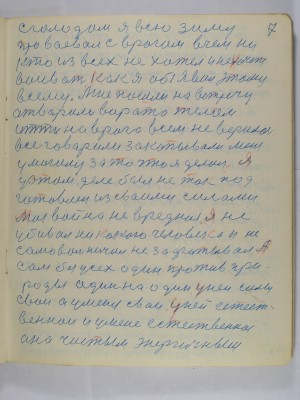 7
с голодом я всю зиму
провоевал с врогом в чем ни
кто из всех не хотел и не хочет
воиват как я объявил этому
всему. Мне пошли на встречу
атварили варата телем
итти на врага всем не верилос
все говарили закапывали меня
умышку за то что я делал. Я
у этом деле был не так под
готовлен из своими силами
Моя война не вредная Я не
убивал ни какого человека и не
самовольничил не задратывал А
сам без усех один против при-
роды один на один у ней силы
свои а у меня свои у ней естест-
венной и умене естественная
она чистым энергичным